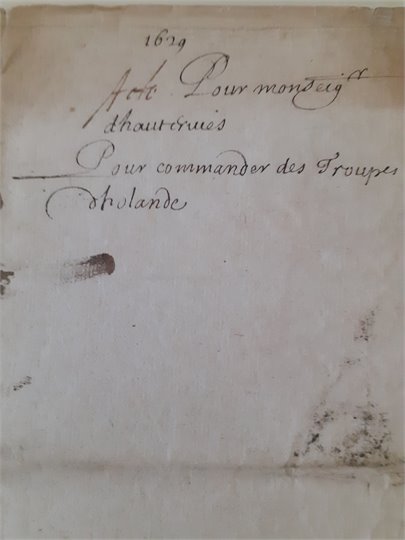 1629
Acte Pour monseigr
dhauterives
Pour commander des Troupes
dholande